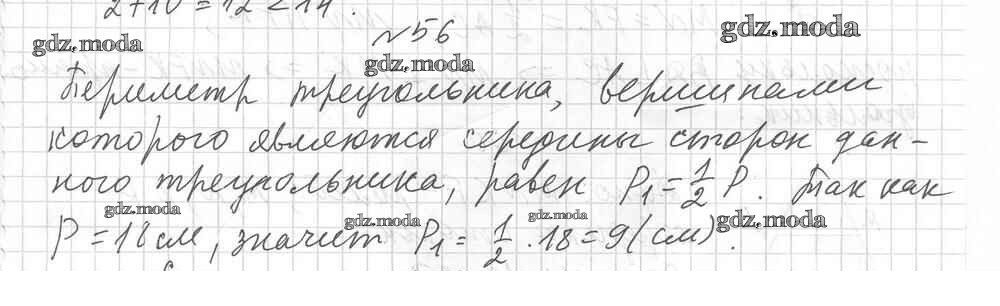 2+10=12<14.
№56
Периметр треугольника, вершинами
которого являются середины сторон дан-
ного треугольника, равен P₁=1/2 P. Так как
P=18см, значит P₁= 1/2 · 18=9(см).
gdz.moda
gdz.moda
gdz.moda
gdz.moda
gdz.moda
gdz.moda
gdz.moda